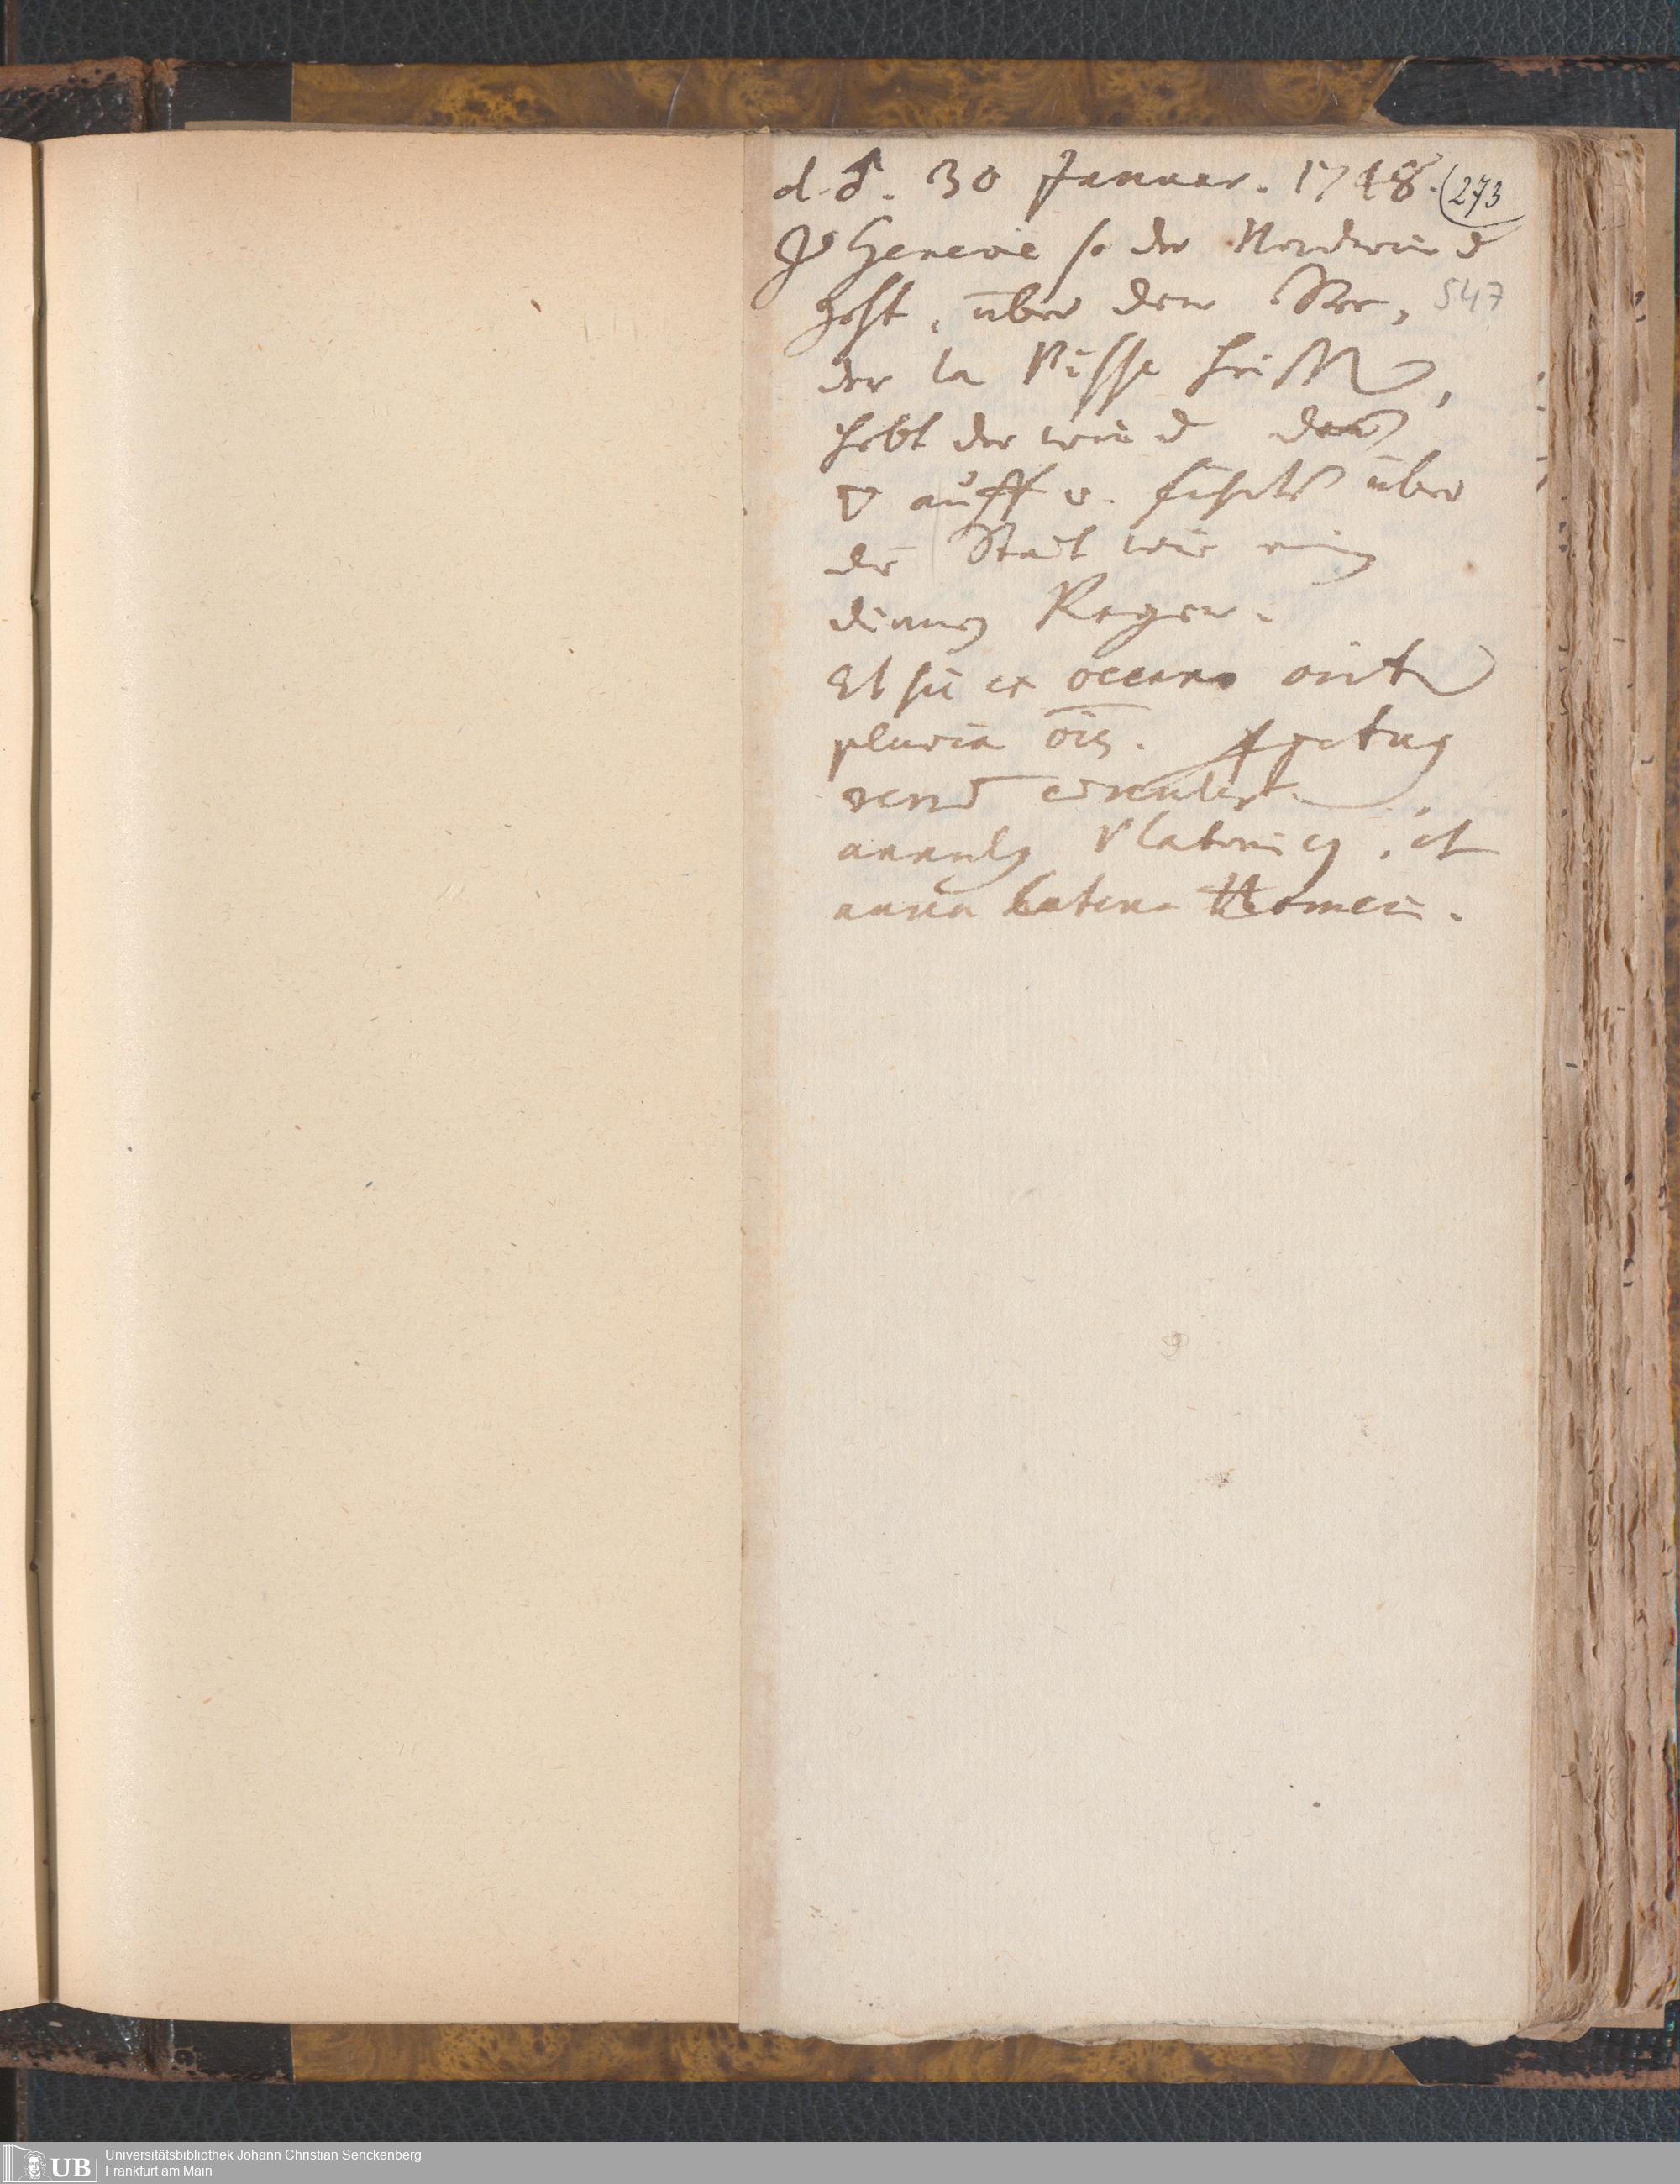 d. ♂. 30 Januar. 1748. (273
Geneve so der Nordwind
geht, über den See, 547
der la Bisse heisst,
hebt der wind den
▽ auff u. führts über
die Stadt wie ein
dünner Regen.
Et sic ex oceano orit
pluvia ōis.
rerū circulus
annulus Platonicus, et
aurea Catena Homeri.
UB
Universitätsbibliothek Johann Christian Senckenberg
Frankfurt am Main